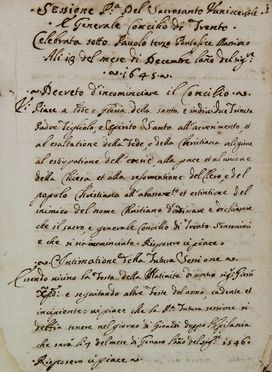 Sessione P.ª Del Sacrosanto Universale
& Generale Concilio di Trento
Celebrata sotto Pauolo terzo Pontefice Massimo
Alli 13 del mese di Decembre l'ano del sig.re
1545
Decreto d'incominciare il Concilio
Vi Piace a lode e gloria della santa e individua Trinita
Padre figliolo, e Spirito Santo all'accrescimento et
al esaltatione della Fede, e della Christiana religione
al estirpatione dell'eresie alla pace et al unione
della Chiesa et alla reformatione del Clero, e del
popolo Christiano all' et estintione del
inimico del nome Christiano d'ordinare e dichiarare
che il sacro e generale Concilio di Trento s'incomincij
e che si sia incominciato. Risposero vi piace
Intimatione della futura Sessione
Essendo vicina la festa della Natività di nostro sig.r Giesù
Xpo, e seguitando altre feste del anno, cadente et
incipiente: vi piace che la P.ª futura sessione si
debbia tenere nel giorno di Giovidi doppo l'Epifania
che sara li 7 del mese di Genaro l'ano del sig.re 1546
Risposero vi piace